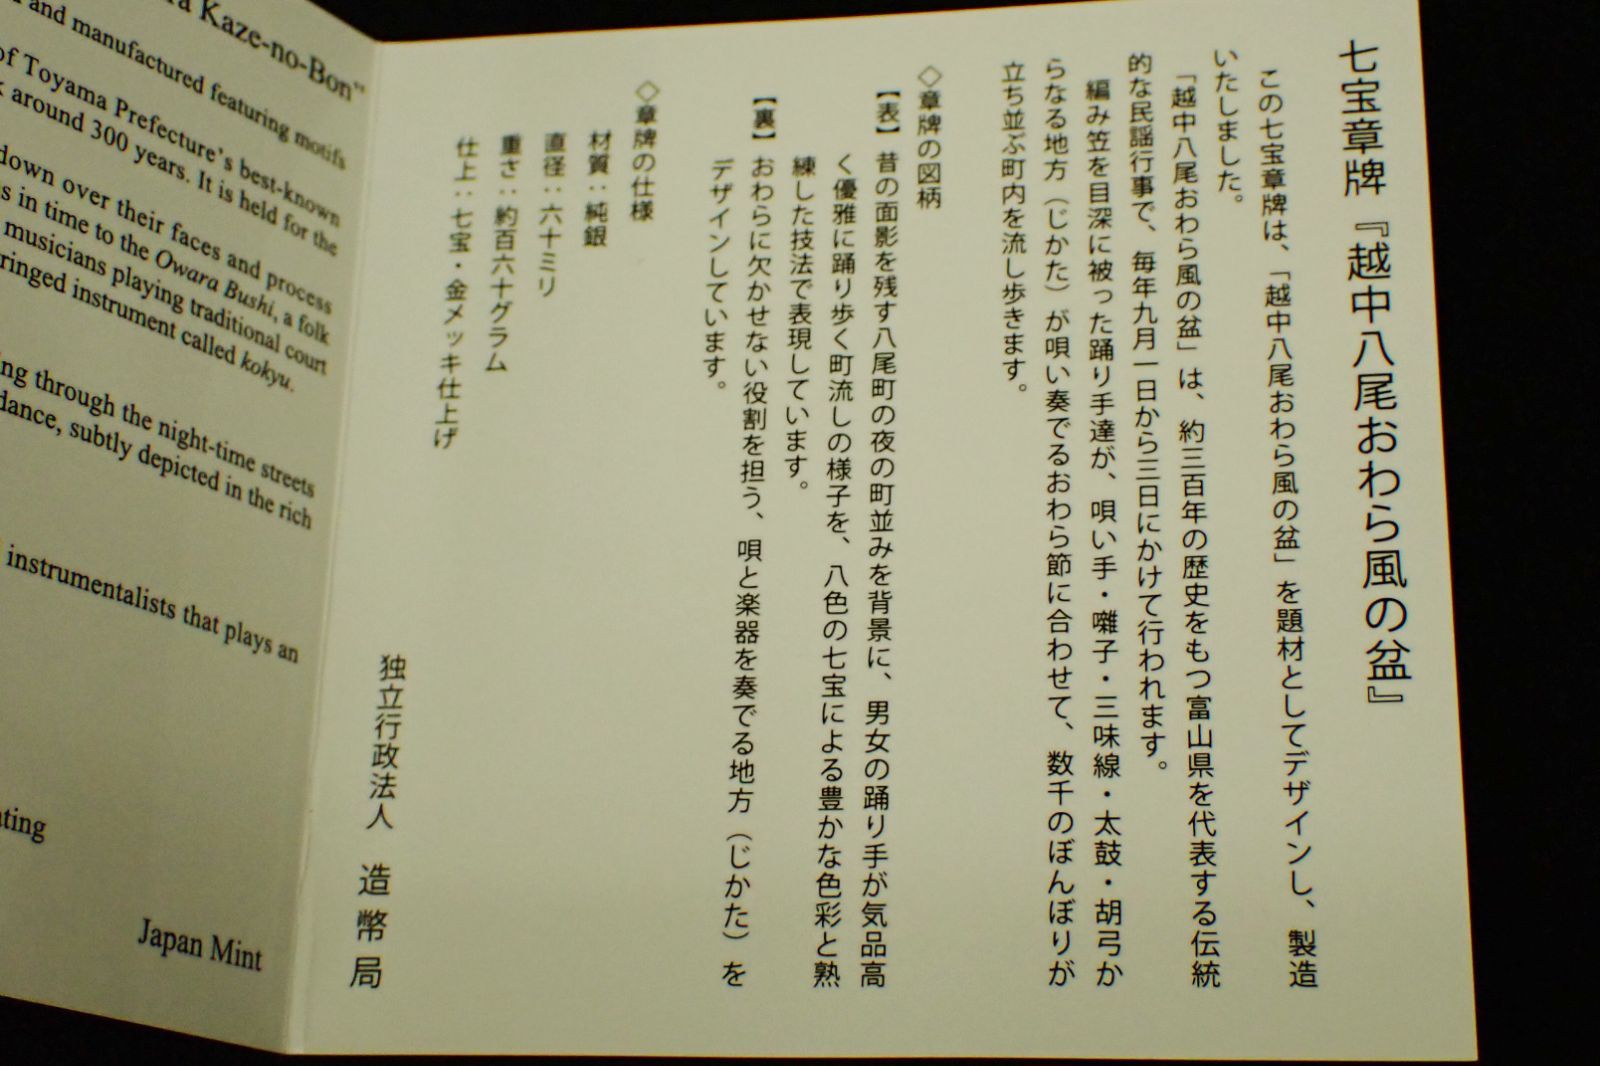 Kaze-no-Bon"
and manufactured featuring motifs
of Toyama Prefecture's best-known
around 300 years. It is held for the
down over their faces and process
in time to the Owara Bushi, a folk
musicians playing traditional court
instrument called kokyu.
through the night-time streets
dance, subtly depicted in the rich
instrumentalists that plays an
Japan Mint
七宝章牌『越中八尾おわら風の盆』
この七宝章牌は、「越中八尾おわら風の盆」を題材としてデザインし、製造
いたしました。
「越中八尾おわら風の盆」は、約三百年の歴史をもつ富山県を代表する伝統
的な民謡行事で、毎年九月一日から三日にかけて行われます。
編み笠を目深に被った踊り手達が、唄い手・囃子・三味線・太鼓・胡弓か
らなる地方（じかた）が唄い奏でるおわら節に合わせて、数千のぼんぼりが
立ち並ぶ町内を流し歩きます。
◇章牌の図柄
【表】昔の面影を残す八尾町の夜の町並みを背景に、男女の踊り手が気品高
く優雅に踊り歩く町流しの様子を、八色の七宝による豊かな色彩と熟
練した技法で表現しています。
【裏】おわらに欠かせない役割を担う、唄と楽器を奏でる地方（じかた）を
デザインしています。
◇章牌の仕様
材質：純銀
直径：六十ミリ
重さ：約百六十グラム
仕上：七宝・金メッキ仕上げ
独立行政法人 造幣局